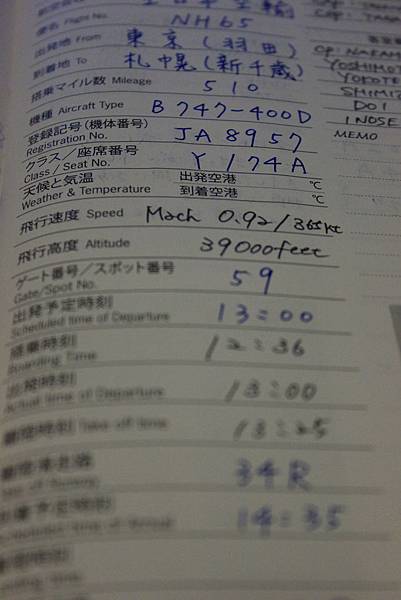 全日本空輸
便名 Flight No. NH65
出発地 From 東京(羽田)
到着地 To 札幌(新千歳)
搭乗マイル数 Mileage 510
機種 Aircraft Type B747-400D
登録記号(機体番号)
Registration No. JA8957
クラス/座席番号
Class / Seat No. Y / 74A
天候と気温 出発空港 ℃
Weather & Temperature 到着空港 ℃
飛行速度 Speed Mach 0.92/365kt
飛行高度 Altitude 39000feet
ゲート番号/スポット番号
Gate/Spot No. 59
出発予定時刻
Scheduled time of Departure 13:00
搭乗時刻
Boarding Time 12:36
出発時刻
Actual time of Departure 13:00
離陸時刻 Take off time 13:25
34R
14:35
YOSHIMO
YOKOTE
SHIMIZ
DOI
INOSE
MEMO